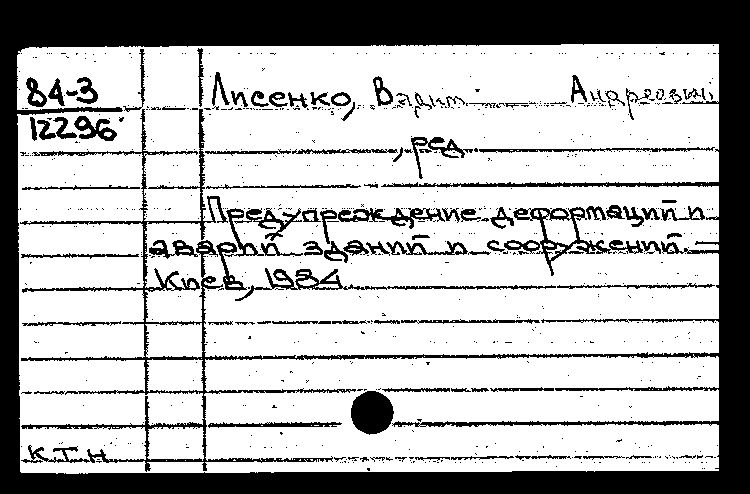 84-3
12296
Лисенко, Вадим Андреевич
, ред
Предупреждение деформаций и
аварий зданий и сооружений. —
Киев, 1984
к.т.н